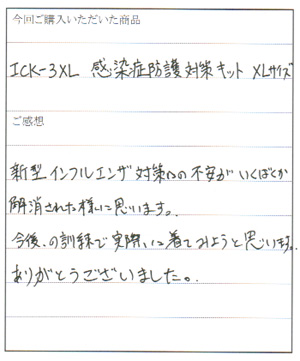 今回ご購入いただいた商品
ICK-3XL 感染症防護対策キット XLサイズ
ご感想
新型インフルエンザ対策への不安がいくばくか
解消された様に思います。
今後の訓練で実際に着てみようと思います。
ありがとうございました。